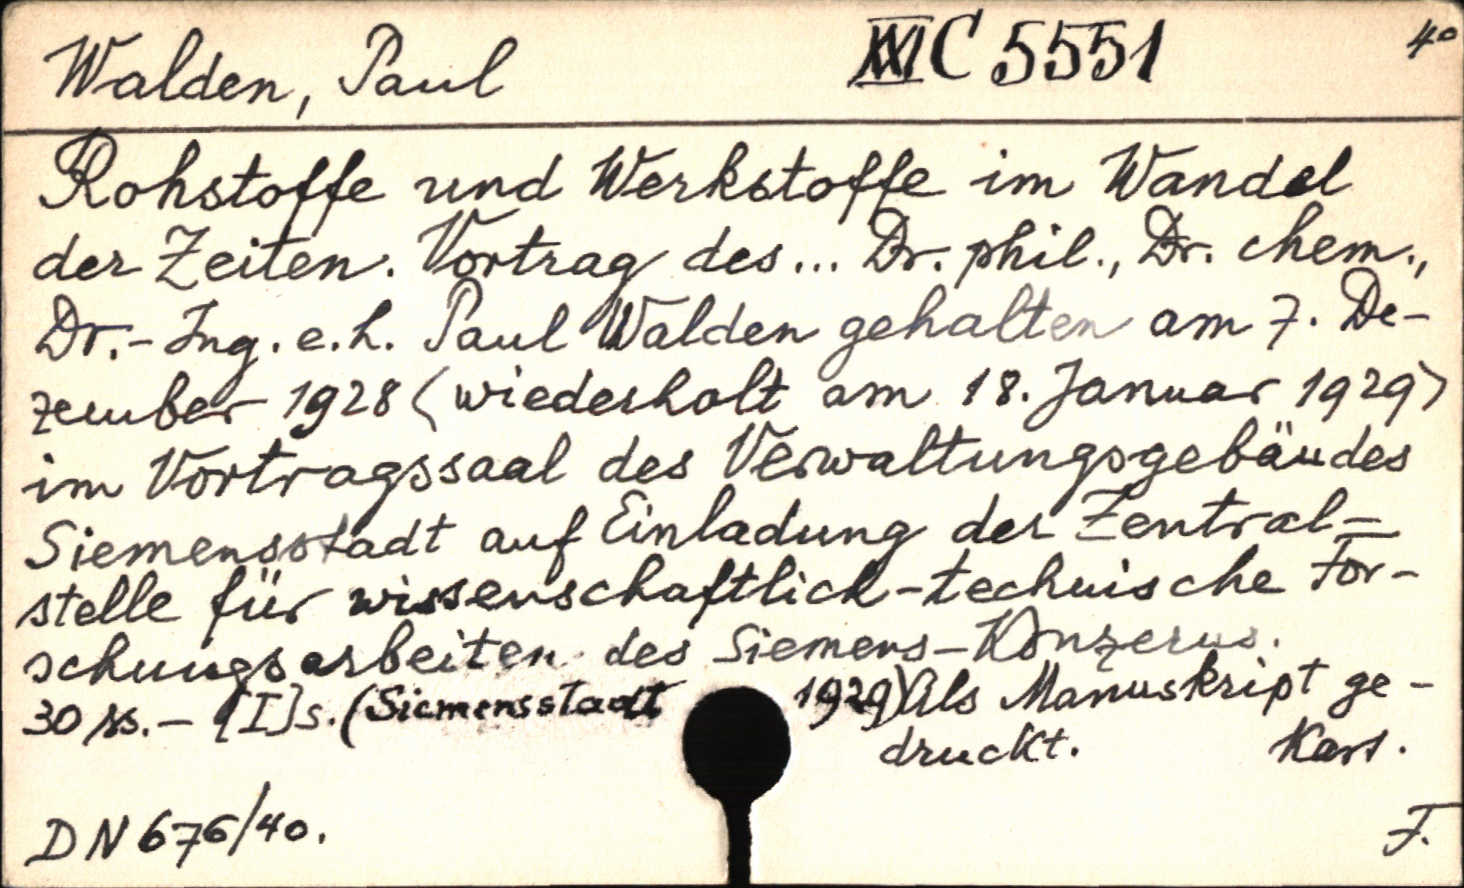 Walden, Paul XXI C 5551 4°
Rohstoffe und Werkstoffe im Wandel
der Zeiten. Vortrag des... Dr. phil., Dr. chem.,
Dr.-Ing. e.h. Paul Walden gehalten am 7. De-
zember 1928 (wiederholt am 18. Januar 1929)
im Vortragssaal des Verwaltungsgebäudes
Siemensstadt auf Einladung der Zentral=
stelle für wissenschaftlich-technische For-
schungsarbeiten des Siemens-Konzerns.
30 ss. - [I] s. (Siemensstadt 1929) Als Manuskript ge-
druckt. Kart.
DN 676/40. F.